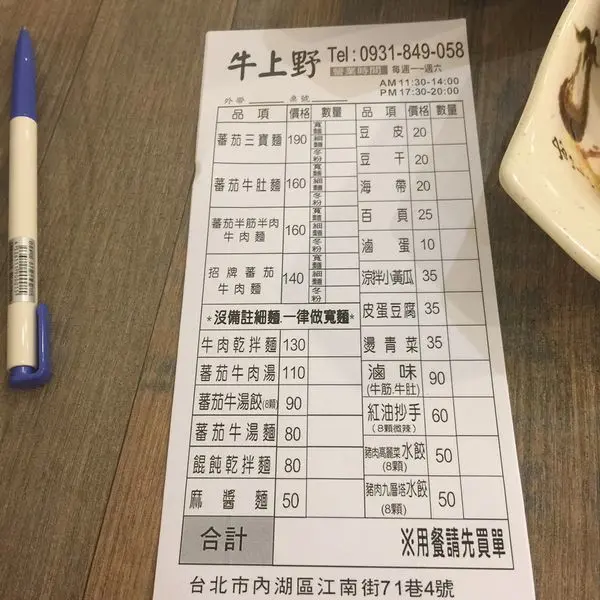 牛上野 Tel : 0931-849-058
營業時間 每週一~週六
AM 11:30-14:00
PM 17:30-20:00
外帶 桌號
品項 價格 數量 品項 價格 數量
蕃茄三寶麵 190 寬麵 細麵 冬粉
豆皮 20
豆干 20
蕃茄牛肚麵 160 寬麵 細麵 冬粉
海帶 20
百頁 25
蕃茄半筋半肉
牛肉麵 160 寬麵 細麵 冬粉
滷蛋 10
涼拌小黃瓜 35
招牌蕃茄
牛肉麵 140 寬麵 細麵 冬粉
皮蛋豆腐 35
*沒備註細麵.一律做寬麵*
燙青菜 35
牛肉乾拌麵 130
滷味
(牛筋.牛肚) 90
蕃茄牛肉湯 110
蕃茄牛湯餃(8顆) 90
紅油抄手
(8顆微辣) 60
蕃茄牛湯麵 80
豬肉高麗菜水餃
(8顆) 50
餛飩乾拌麵 80
豬肉九層塔水餃
(8顆) 50
麻醬麵 50
合計
※用餐請先買單
台北市內湖區江南街71巷4號